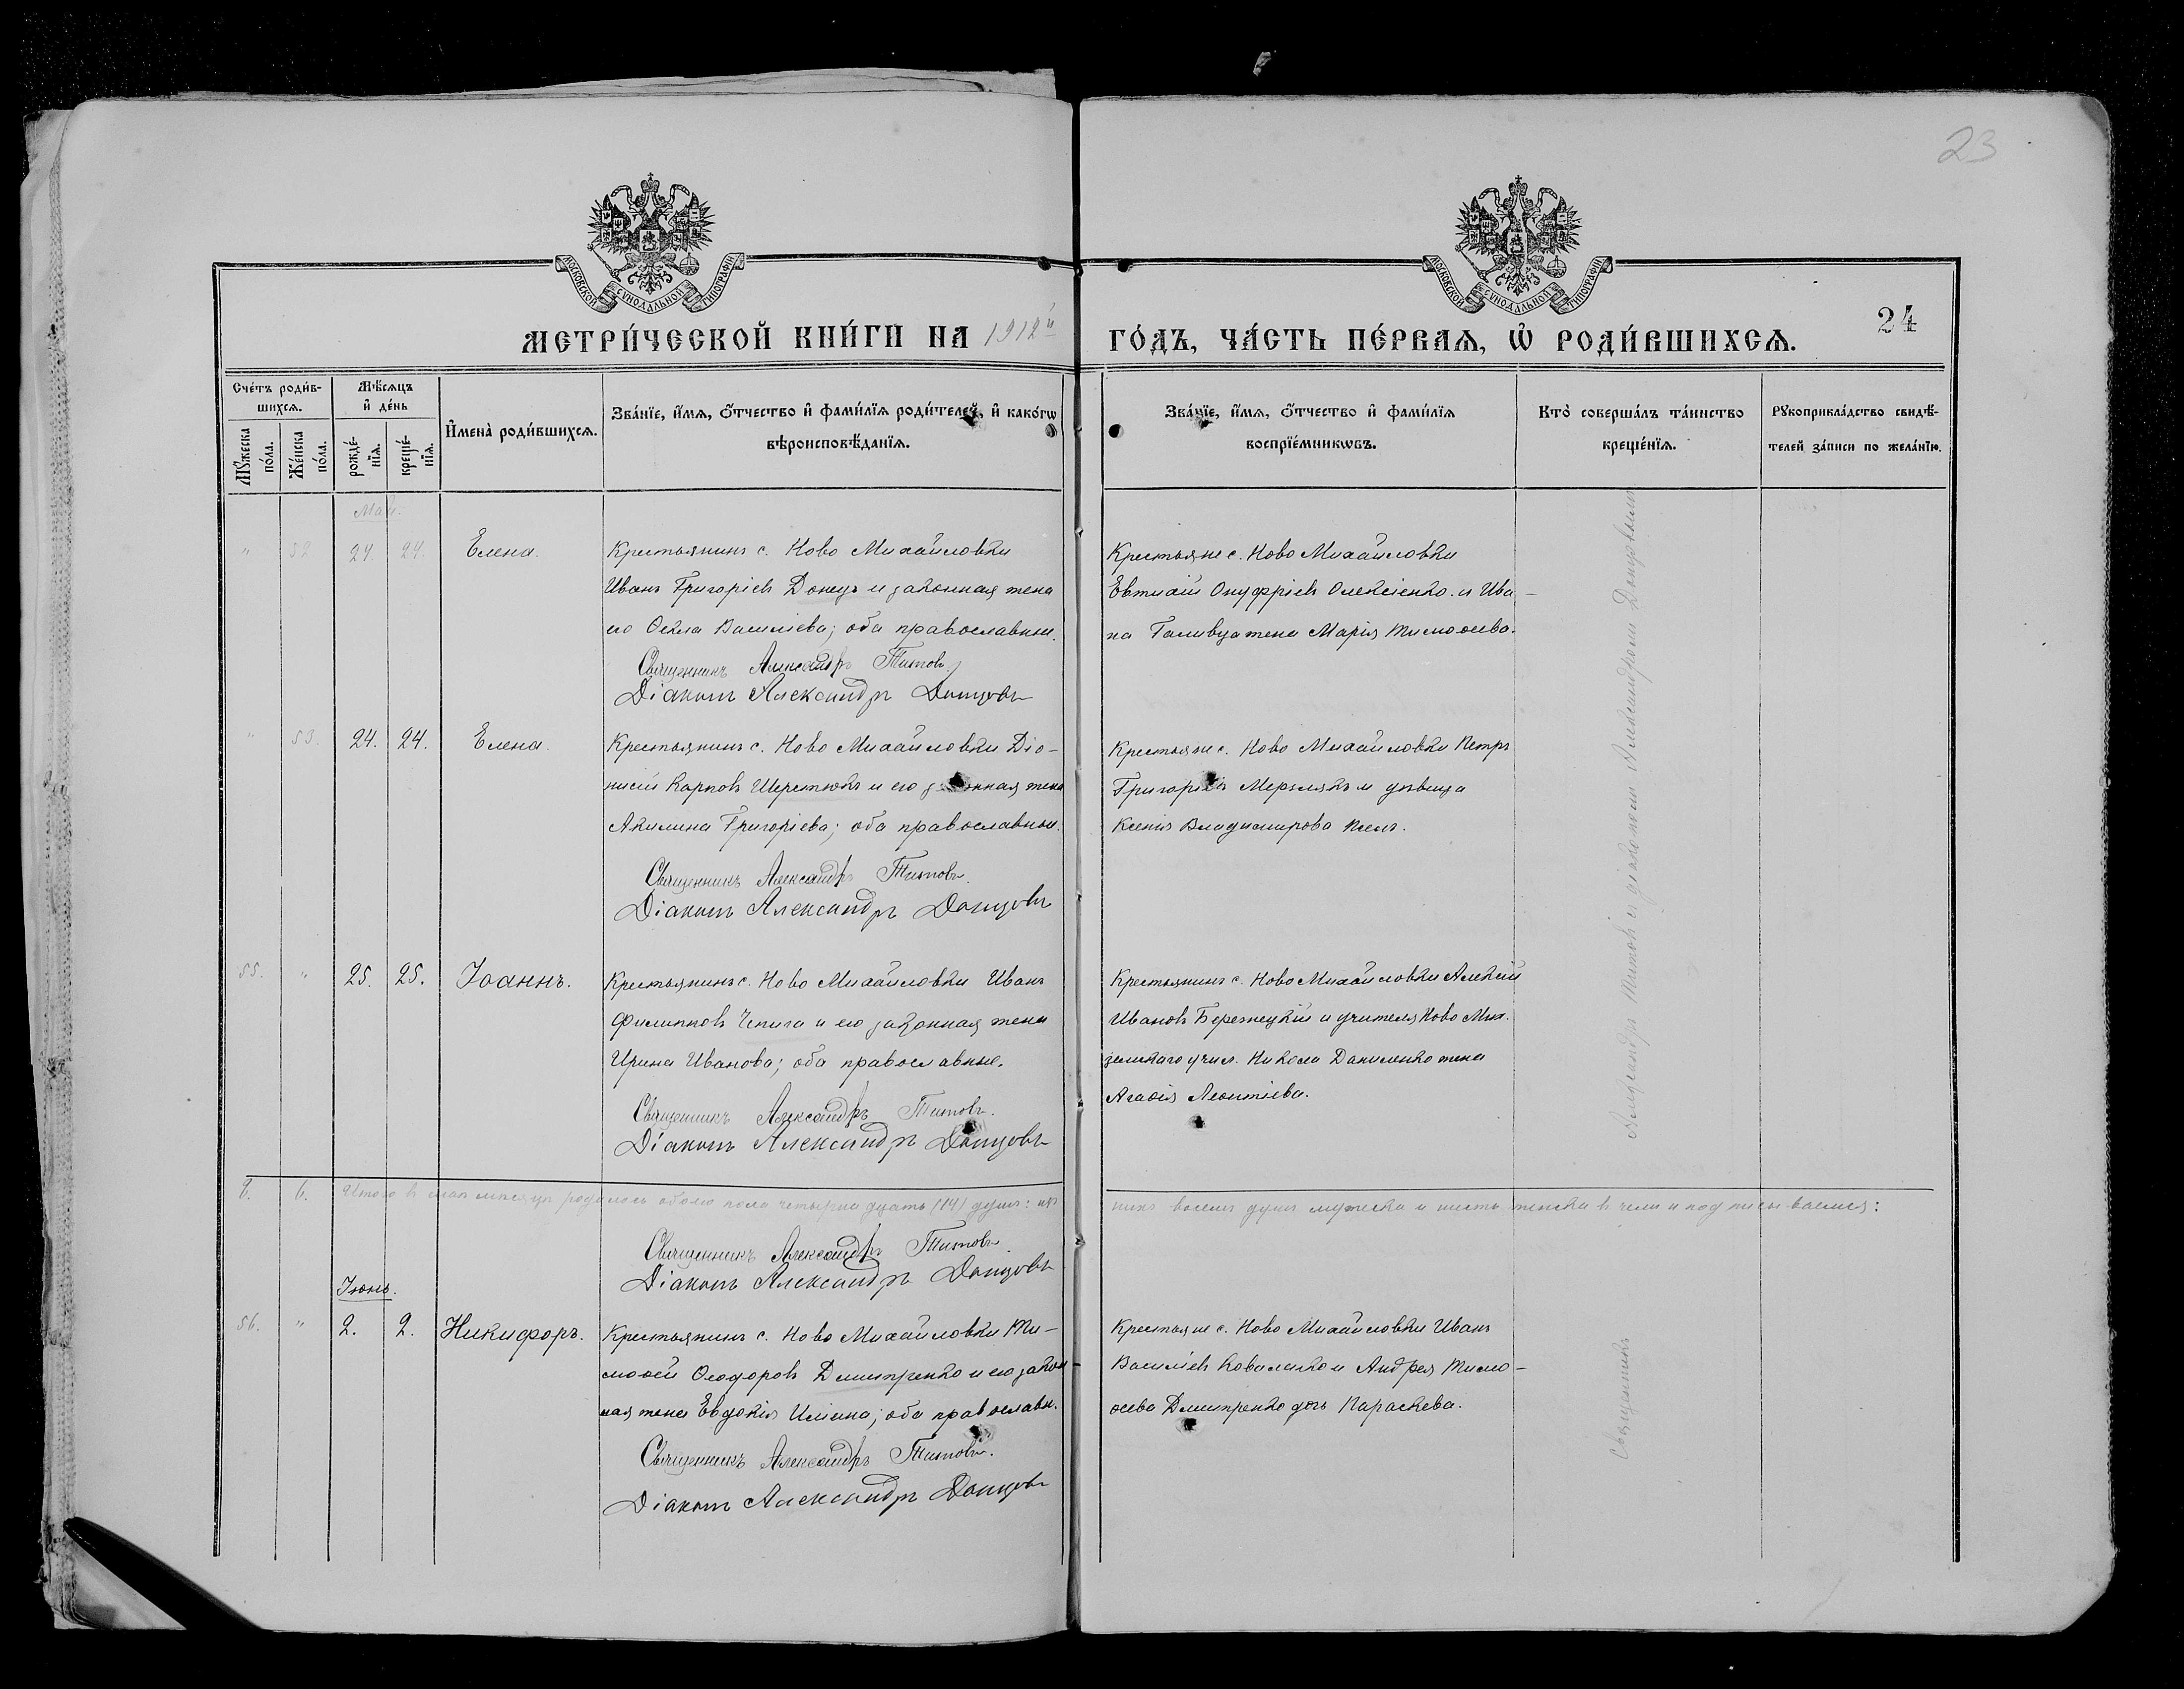 23
МОСКОВСКОЙ СѴНОДАЛЬНОЙ ТИПОГРАФІИ
МОСКОВСКОЙ СѴНОДАЛЬНОЙ ТИПОГРАФІИ
МЕТРИ́ЧЕСКОЙ КНИ́ГИ НА 1912й ГО́ДЪ, ЧА́СТЬ ПЕ́РВАѦ, Ѡ РОДИ́ВШИХСѦ.
24
Сче́тъ роди́в-
шихсѧ.
Мѣ́сѧцъ
и҆ де́нь
Мꙋ́жеска
по́ла.
Же́нска
по́ла.
рожде́-
нїѧ.
креще́-
нїѧ.
И҆мена̀ роди́вшихсѧ.
Зва́нїе, и҆́мѧ, ѻ҆́тчество и҆ фами́лїѧ роди́телей, и҆ како́гѡ
вѣроисповѣ́данїѧ.
Зва́нїе, и҆́мѧ, ѻ҆́тчество и҆ фами́лїѧ
воспрїе́мникѡвъ.
Кто̀ соверша́лъ та́инство
креще́нїѧ.
Рꙋкоприкла́дство свидѣ́-
телей за́писи по жела́нїю.
Май.
" 52 24. 24. Елена.
Крестьянинъ с. Ново Михайловки
Иванъ Григоріевъ Донецъ и законная жена
его Ѳекла Василіева; оба православные.
Священникъ Александръ Титовъ
Діаконъ Александръ Донцовъ
Крестьяне с. Ново Михайловки
Евтихій Онуфріевъ Олексіенко и Ива-
на Галивца жена Марія Тимоѳеева.
" 53. 24. 24. Елена.
Крестьянинъ с. Ново Михайловки Діо-
нисій Карповъ Шерстюкъ и его законная жена
Акилина Григоріева; оба православные.
Священникъ Александръ Титовъ.
Діаконъ Александръ Донцовъ
Крестьяне с. Ново Михайловки Петръ
Григорьевъ Мерзлякъ и дѣвица
Ксенія Владимирова
55. " 25. 25. Іоаннъ.
Крестьянинъ с. Ново Михайловки Иванъ
Филипповъ Чепига и его законная жена
Ирина Иванова; оба православные.
Священникъ Александръ Титовъ.
Діаконъ Александръ Донцовъ
Крестьянинъ с. Ново Михайловки Алексій
Ивановъ Бережецкій и учителя Ново Мих.
земскаго учил. Никола Даниленко жена
Агаѳія Леонтіева.
Александръ Титовъ съ діакономъ Александромъ Донцовымъ
8. 6. Итого въ маѣ мѣсяцѣ родилось обоего пола четырнадцать (14) душъ: изъ
нихъ восемь душъ мужеска и шесть женска въ чемъ и подписываемся:
Священникъ Александръ Титовъ.
Діаконъ Александръ Донцовъ
Іюнь.
56. " 2. 2. Никифоръ.
Крестьянинъ с. Ново Михайловки Ти-
моѳей Ѳеодоровъ Дмитренко и его закон-
ная жена Евдокія Иліина; оба православн.
Священникъ Александръ Титовъ.
Діаконъ Александръ Донцовъ
Крестьяне с. Ново Михайловки Иванъ
Василіевъ Коваленко и Андрея Тимо-
ѳеева Дмитренко дочь Параскева.
Священникъ